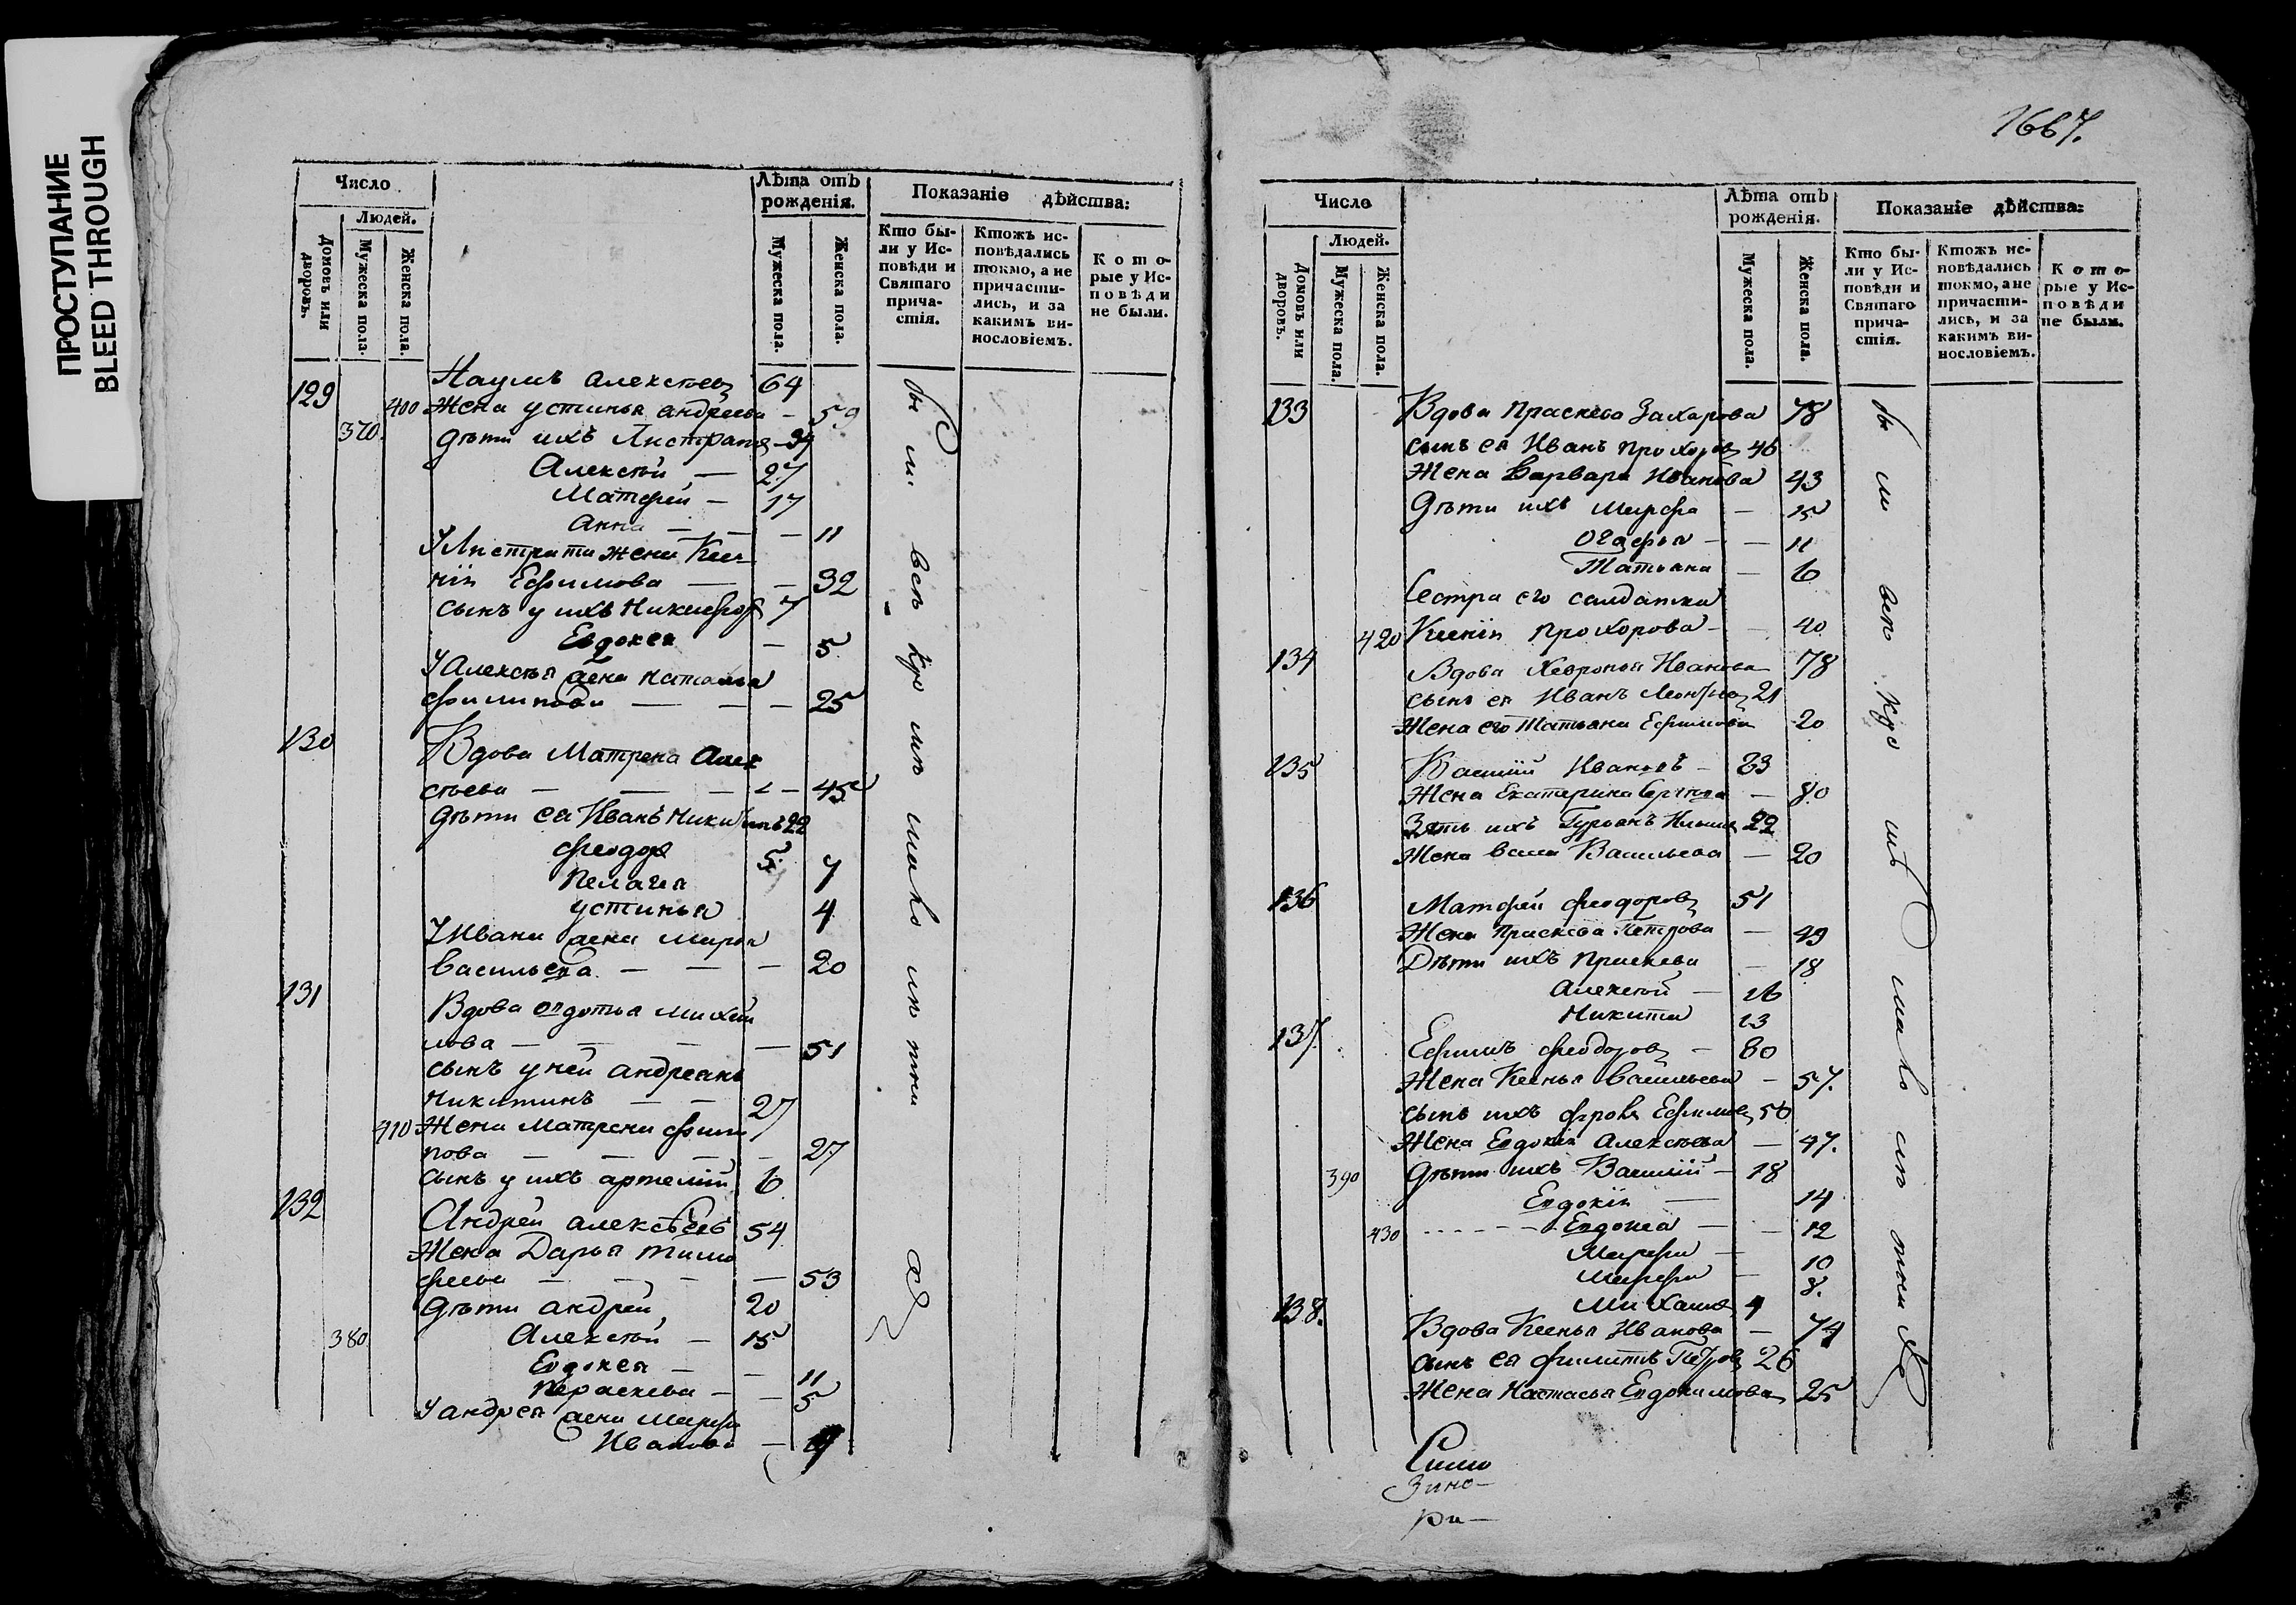 ПРОСТУПАНИЕ
BLEED THROUGH
Число
Людей.
Домовъ или дворовъ.
Мужеска пола.
Женска пола.
Лѣта отъ рожденія.
Мужеска пола.
Женска пола.
Показаніе дѣйства:
Кто были у Исповѣди и Святаго причастія.
Ктожъ исповѣдались токмо, а не причастились, и за какимъ винословіемъ.
Которые у Исповѣди не были.
129 Наумъ Алексѣевъ 64
400 Жена устинья андреева — 59
370. дѣти ихъ Листратъ — 34
Алексѣй — 27
Матфей — 17
Анна — — 11
У Листрата жена Ксе
нія Ефимова — — 32
сынъ у ихъ Никифоръ 7
Евдокея — 5
У Алексѣя жена наталья
филипова — — — 25
130 Вдова Матрена Алек
сѣева — — — 45
дѣти ея Иванъ Никитинъ 22
феодоръ 5
Пелагея 7
устинья 4
У Ивана жена марья
васильева — — — 20
131 Вдова овдотья михай
лова — — — — 51
сынъ у ней андреянъ
Никитинъ — — 27
410 Жена Матрена фили
пова — — — — 27
сынъ у ихъ артемій 6
132 Андрей алексѣевъ 54
Жена Дарья тимо
феева — — — — 53
дѣти андрей 20
380. Алексѣй — 15
Евдокея — — 11
Параскева — — 5
У андрея жена марфа
Иванова —
были всѣ кро мѣ мало лѣ тни хъ
1667.
Число
Людей.
Домовъ или дворовъ.
Мужеска пола.
Женска пола.
Лѣта отъ рожденія.
Мужеска пола.
Женска пола.
Показаніе дѣйства:
Кто были у Исповѣди и Святаго причастія.
Ктожъ исповѣдались токмо, а не причастились, и за какимъ винословіемъ.
Которые у Исповѣди не были.
133 Вдова праскева Захарова 78
сынъ ея Иванъ прохоровъ 46
Жена Варвара Иванова 43
дѣти ихъ марфа — 15
огафья — — 11
Татьяна — 6
Сестра его салдатка
420 Ксенія прохорова — — 40
134 Вдова Хевронья Иванова 78
сынъ ея Иванъ 21
Жена его Татьяна Ефимова 20
135 Василій Ивановъ — 83
Жена Екатерина — 80
Зять ихъ 22
Жена Васильева — 20
136 Матфей феодоровъ 51
Жена праскева Петрова — 49
Дѣти ихъ праскева — 18
Алексѣй — 16
Никита 13
137. Ефимъ феодоровъ — 80
Жена Ксенья васильева — 57.
сынъ ихъ фролъ Ефимовъ 50
Жена Евдокія Алексѣева — 47.
390 дѣти ихъ Василій — 18
Евдокія — 14
430 Евдокея — — 12
Марфа — 10
марфа — 8.
михаилъ 4
138. Вдова Ксенья Иванова — 74
сынъ ея филипъ Петровъ 26
Жена Настасья Евдокимова 25
были всѣ кро мѣ мало лѣ тни хъ